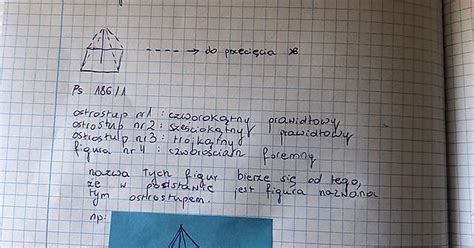 do przecięcia
Ps 186/1
ostrosłup nr 1: czworokątny prawidłowy
ostrosłup nr 2: sześciokątny prawidłowy
ostrosłup nr 3: trójkątny
figura nr 4: czworościan foremny
nazwa tych figur bierze się od tego,
że w podstawie jest figura nazwana
tym ostrosłupem.
np: